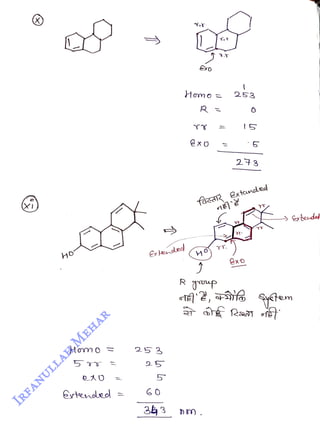 x
r.r
r.r
r.r
exo
Homo = 253
R = 0
rr = 15
exo = 5
273
xi
विस्तार Extended
नहीं है
rr
rr
rr
→ Extended
Extended
HO
HO
rr
rr
Exo
R group
नहीं है, क्योंकि System
से कोई रिश्ता नहीं
IRFANULLAH MEHAR
Homo = 253
5 rr = 25
exo = 5
Extended = 60
343 nm.